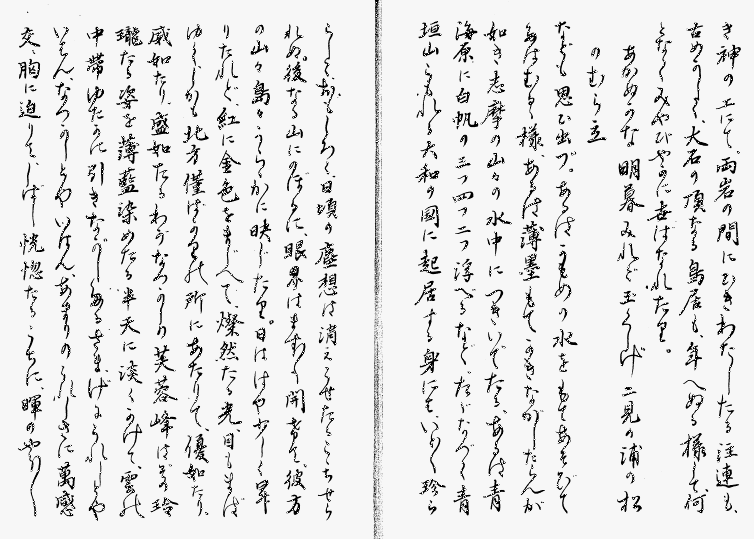 き神の工にて、両岩の間にひきわたしたる注連も、
古めかしく、大石の頂なる鳥居も、年へぬる様して、何
となくみやびやかに世はなれたり。
あかめかな明暮みれど玉くしげ二見の浦の松
のむら立
なども思ひ出づ。あるはかもめの水をもてあそびて
なほむるゝ様、あるは薄墨もてかきながしたらんが
如き志摩の山々の水中につきいでたる、あるは青
海原に白帆の三つ四つ二つ浮べるなど、たゞたゞ青
垣山こもれる大和の国に起居する身にとて、いとゞ珍ら
しくおもしろく、日頃の塵想は消えうせたるこゝちせら
れぬ。後なる山にのぼるに、眼界はますます開きて、彼方
の山々島々うらゝかに映じたり。日ははや少しく昇
りたれど、紅に金色をまじへて、燦然たる光、目もまば
ゆく、しかも北方僅ばかりの所にあたりて、優如たり、
威如たり、盛如たるわがなつかしの芙蓉峰は、その玲
瓏たる姿を薄藍染めたる半天に淡くかけて、雲の
中帯ゆたかに引きながしゐるさま、げにうれしとや
いはん、なつかしとやいはん、あまりのうれしさに万感
交々胸に迫りて、しばし恍惚たるうちに、暉のやう〱